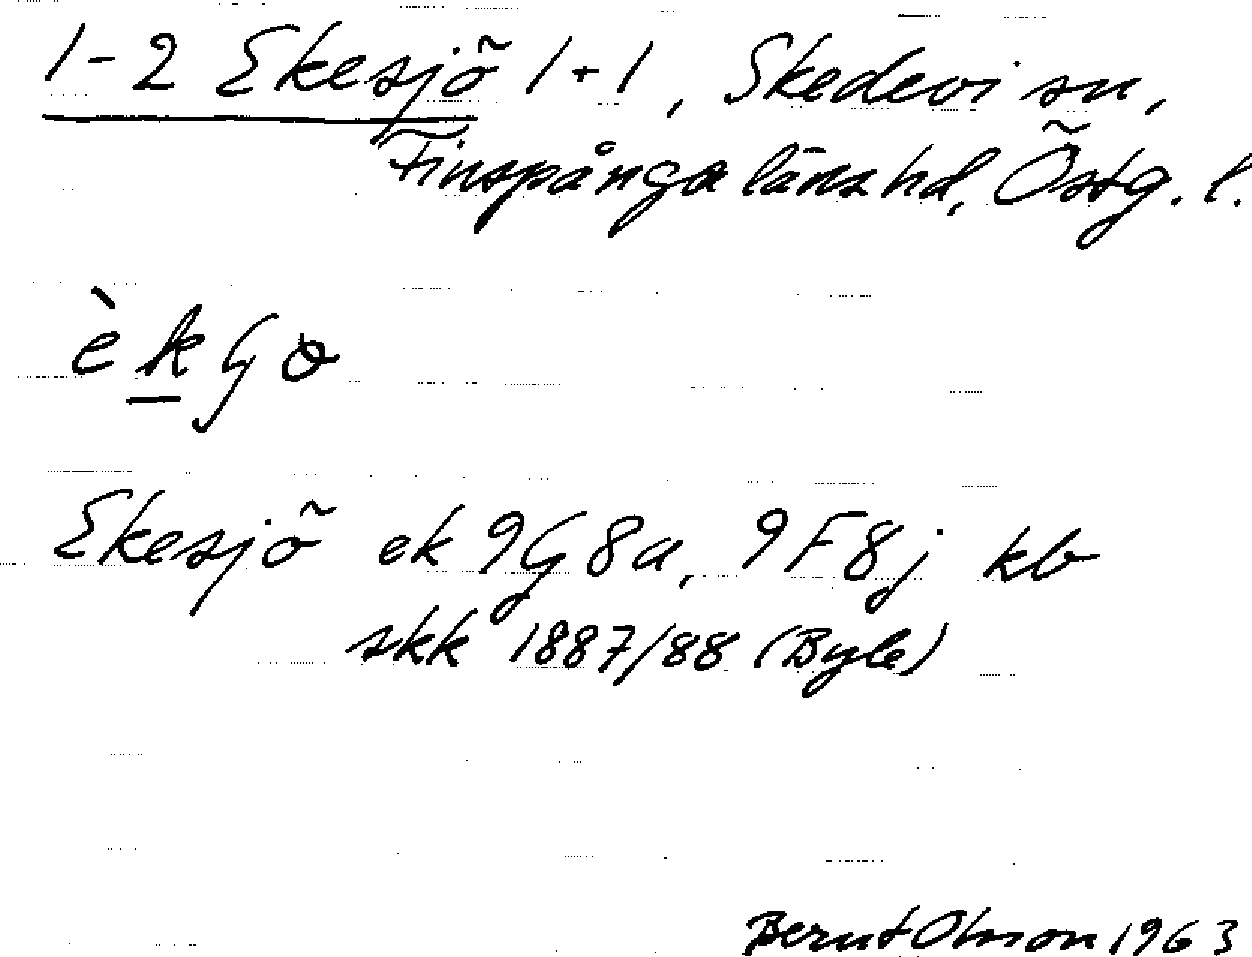 1-2 Ekesjö 1+1, Skedevi sn,
Finspånga läns hd, Östg. l.
èkʃo
Ekesjö ek 9G8a, 9F8j kb
skk 1887/88 (Byle)
Bernt Olsson 1963